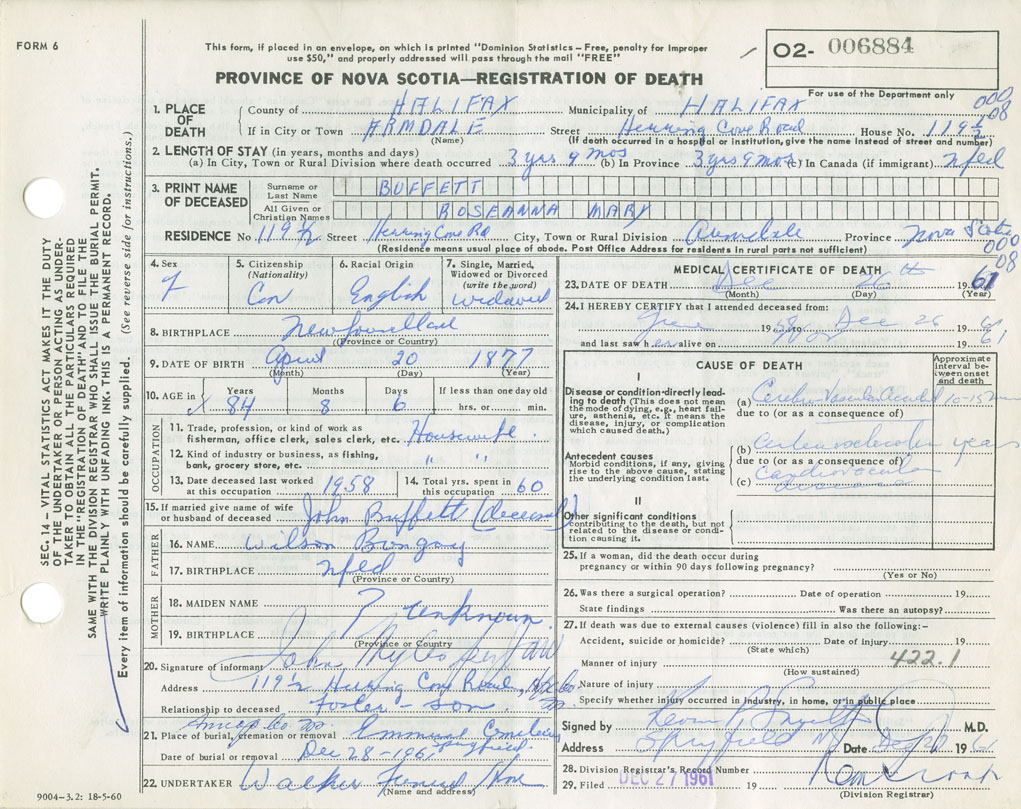 FORM 6
This form, if placed in an envelope, on which is printed "Dominion Statistics – Free, penalty for improper
use $50," and properly addressed will pass through the mail "FREE"
PROVINCE OF NOVA SCOTIA—REGISTRATION OF DEATH
O2- 006884
For use of the Department only
000
08
1. PLACE OF DEATH
County of HALIFAX Municipality of HALIFAX
If in City or Town ARMDALE Street Herring Cove Road House No. 119½
(Name) (If death occurred in a hospital or institution, give the name instead of street and number)
2. LENGTH OF STAY (in years, months and days)
(a) In City, Town or Rural Division where death occurred 3 yrs 9 mos (b) In Province 3 yrs 9 mos (c) In Canada (if immigrant) Nfld
3. PRINT NAME OF DECEASED
Surname or Last Name BUFFETT
All Given or Christian Names ROSEANNA MARY
RESIDENCE No. 119½ Street Herring Cove Rd City, Town or Rural Division Armdale Province Nova Scotia
(Residence means usual place of abode. Post Office Address for residents in rural parts not sufficient)
000
08
4. Sex F
5. Citizenship (Nationality) Can
6. Racial Origin English
7. Single, Married, Widowed or Divorced (write the word) widowed
8. BIRTHPLACE Newfoundland
(Province or Country)
9. DATE OF BIRTH April 20 1877
(Month) (Day) (Year)
10. AGE in Years 84 Months 8 Days 6 If less than one day old
hrs. or min.
OCCUPATION
11. Trade, profession, or kind of work as
fisherman, office clerk, sales clerk, etc. Housewife
12. Kind of industry or business, as fishing,
bank, grocery store, etc. " "
13. Date deceased last worked at this occupation 1958
14. Total yrs. spent in this occupation 60
15. If married give name of wife
or husband of deceased John Buffett (deceased)
FATHER
16. NAME Wilson Bungay
17. BIRTHPLACE Nfld
(Province or Country)
MOTHER
18. MAIDEN NAME ? unknown
19. BIRTHPLACE
(Province or Country)
20. Signature of informant John Myles
Address 119½ Herring Cove Road,
Relationship to deceased Foster-Son
21. Place of burial, cremation or removal Emmanuel Cemetery
Date of burial or removal Dec 28-1961
22. UNDERTAKER Walker Funeral Home
(Name and address)
9004-3.2: 18-5-60
MEDICAL CERTIFICATE OF DEATH
23. DATE OF DEATH Dec 26th 1961
(Month) (Day) (Year)
24. I HEREBY CERTIFY that I attended deceased from:
June 1958 to Dec 26 1961
and last saw her alive on 1961
CAUSE OF DEATH
Approximate interval between onset and death
I
Disease or condition directly leading to death (This does not mean the mode of dying, e.g., heart failure, asthenia, etc. It means the disease, injury, or complication which caused death.)
(a) Cerebro Vascular Accident 10-15 min
due to (or as a consequence of)
Antecedent causes
Morbid conditions, if any, giving rise to the above cause, stating the underlying condition last.
(b) Arteriosclerotic years
due to (or as a consequence of)
(c) Cardiovascular
disease
II
Other significant conditions
contributing to the death, but not related to the disease or condition causing it.
25. If a woman, did the death occur during
pregnancy or within 90 days following pregnancy?
(Yes or No)
26. Was there a surgical operation? Date of operation 19
State findings Was there an autopsy?
27. If death was due to external causes (violence) fill in also the following:-
Accident, suicide or homicide? Date of injury 19
(State which)
422.1
Manner of injury
(How sustained)
Nature of injury
Specify whether injury occurred in industry, in home, or in public place
Signed by M.D.
Address Spryfield NS Date 1961
28. Division Registrar's Record Number
29. Filed DEC 27 1961 19
(Division Registrar)
SEC. 14 – VITAL STATISTICS ACT MAKES IT THE DUTY
OF THE UNDERTAKER OR PERSON ACTING AS UNDER-
TAKER TO OBTAIN ALL THE PARTICULARS REQUIRED
IN THE "REGISTRATION OF DEATH" AND TO FILE THE
SAME WITH THE DIVISION REGISTRAR WHO SHALL ISSUE THE BURIAL PERMIT.
WRITE PLAINLY WITH UNFADING INK. THIS IS A PERMANENT RECORD.
Every item of information should be carefully supplied. (See reverse side for instructions.)